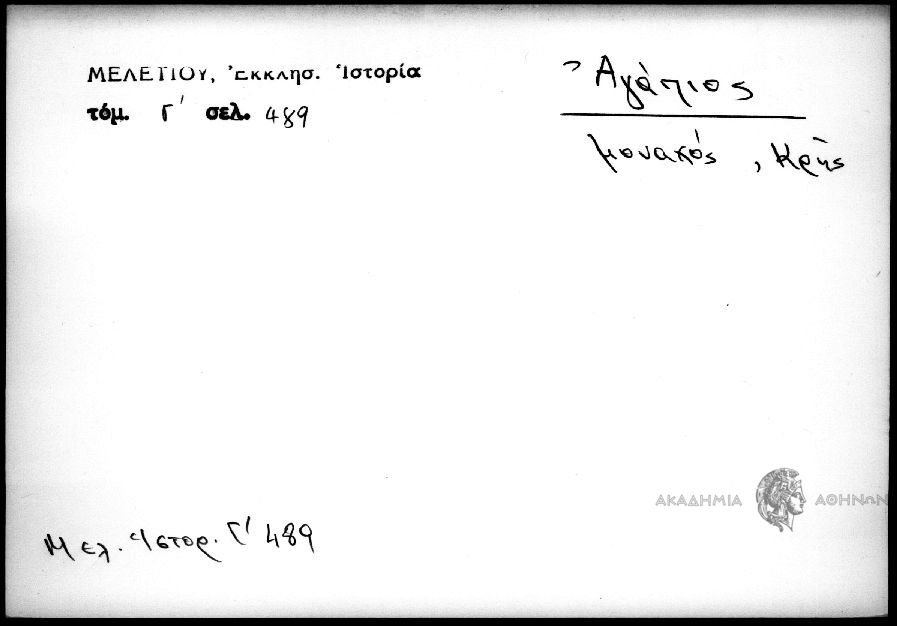 ΜΕΛΕΤΙΟΥ, Ἐκκλησ. Ἱστορία
τόμ. Γ' σελ. 489
Ἀγάπιος
μοναχός, Κρής
ΑΚΑΔΗΜΙΑ ΑΘΗΝΩΝ
Μελ. Ἱστορ. Γ' 489